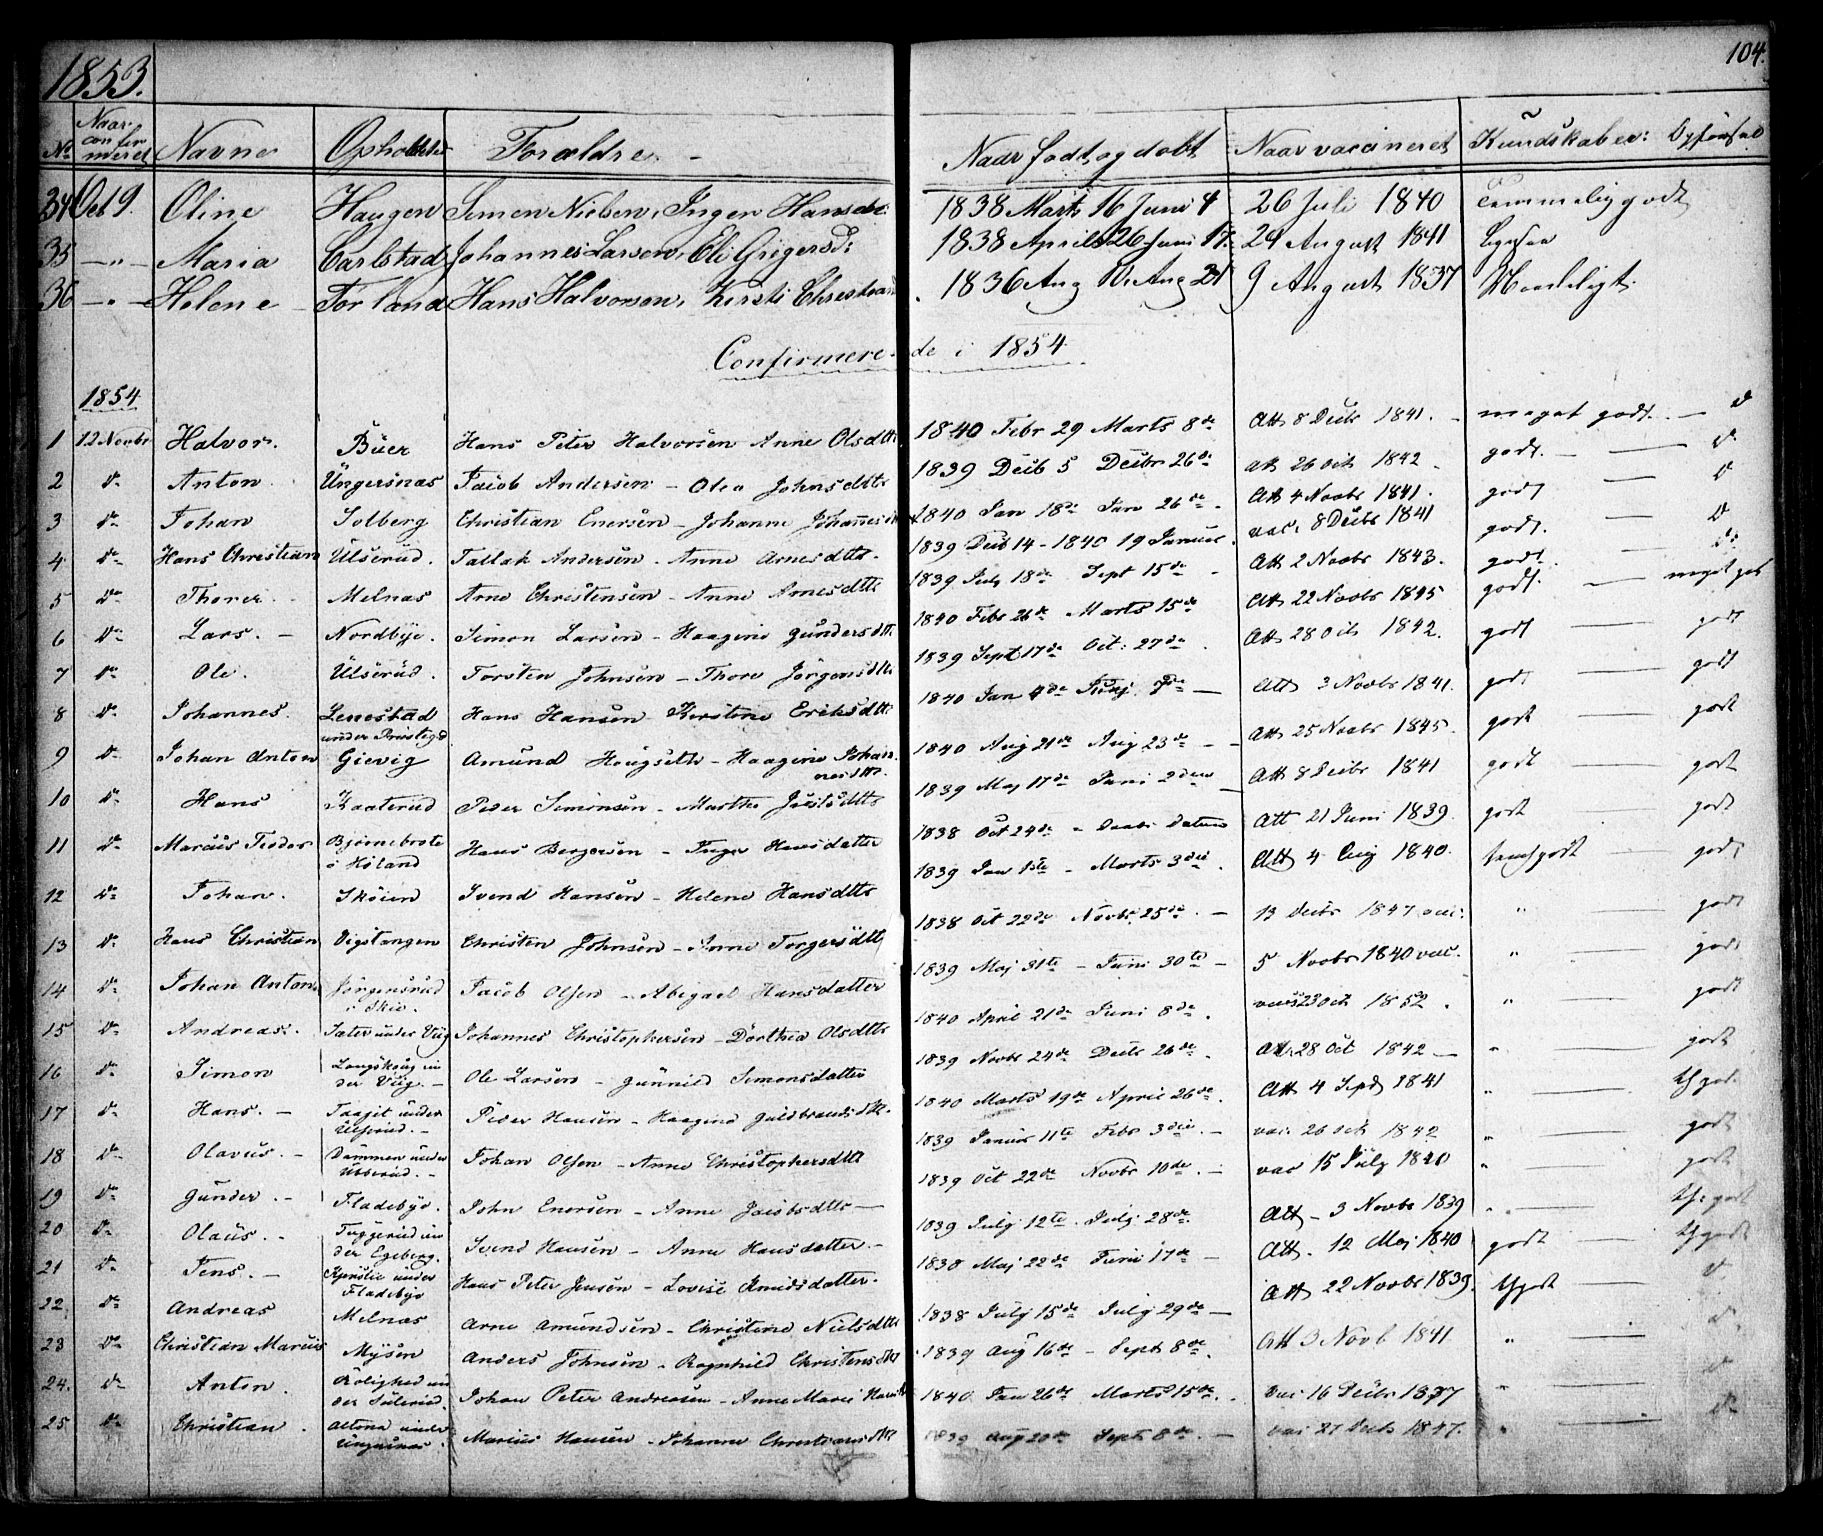 1853. 104.
No Naar confirmeret Navne Opholdsted Forældre Naar født og døbt Naar vaccineret Kundskaber: Opførsel
34 Oct 9. Oline Haugen Simen Nielsen, Inger Hansdr. 1838 Marts 16 Juni 4 26 Juli 1840 Temmelig godt
35 —"— Maria Carlstad Johannes Larsen, Eli Grigersd: 1838 April 26 Juni 17. 24 August 1841 Ligesaa
36 —"— Helene Torland Hans Halvorsen, Kirsti 1836 Aug Aug 21 9 August 1837 Maadeligt.
Confirmerede i 1854.
1854
1 12 Novbr Halvor. Büer Hans Peter Halvorsen Anne Olsdttr 1840 Febr 29 Marts 8de Att 8 Decbr 1841. meget godt. — do
2 do Anton. Üngersnæs Jacob Andersen — Olea Johnsdttr 1839 Decb 5 Decbr 26de att 26 Oct 1842 godt. — do
3 do Johan Solberg Christian Enersen — Johanne Johannesdtt 1840 Jan 18de Jan 26de Att 4 Novbr 1841. godt do
4. do Hans Christian Ülserud. Tallak Andersen. Anne Arnesdttr. 1839 Decb 14 – 1840 19 Januar. vac. 8 Decbr 1841 godt. do
5 do Thorer Melnæs Arne Christensen — Anne Arnesdttr 1839 July 18de Sept 15de Att 2 Novbr 1843. godt. do
6 do Lars. — Nordbye. Simon Larsen — Haagine Gundersdttr. 1840 Febr 26de Marts 15de Att 22 Novbr 1845 godt. — meget godt
7 do Ole. Ülserud. Torsten Johnsen — Thore Jørgensdttr 1839 Sept 17de Oct: 27de Att 28 Oct 1842. godt — godt
8 do Johannes. Lenestad under Prestegd Hans Hansen — Kirstine Eriksdttr 1840 Jan 4de — Att 3 Novbr 1841. godt — godt
9 do Johan Anton Gievig Amund Haugseth — Haagine Johannesdttr. 1840 Aug 21de Aug 23de — Att 25 Novbr 1845. godt — godt
10 do Hans Kaaterud Peder Simonsen — Marthe 1839 Maj 17de Juni 2den Att 8 Decbr 1841 godt — godt
11 do Marcus Teodor Bjørnebrote i Høland Hans Bergersen — Inger Hansdatter 1838 Oct 24de Att 21 Juni 1839. godt — godt
12 do Johan. Skøien Svend Hansen — Helene Hansdttr 1839 Jan 1ste — Marts 3die. Att 4 Aug 1840. temgodt — godt
13 do Hans Christian Vigstangen Christen Johnsen — Anne Torgersdttr 1838 Oct 22de Novbr. 25de. — 13 Decbr 1847 vac. " — godt
14 do Johan Anton Jørgensrud i Skie. Jacob Olsen — Abigael Hansdatter 1839 Maj 31te — Juni 30te — 5 Novbr 1840 vac. " — godt
15 do Andreas. Sæter under Viig Johannes Christophersen — Dorthea Olsdttr 1840 April 21de Juni 8de. vac 23 Oct 1852. " — godt
16 do Simon Langskaug under Viig. — Ole Larsen — Gunnild Simonsdatter 1839 Novbr 24de Decbr 26de. Att. 28 Oct 1842 — " — godt
17 do Hans. — Taajet under Ülsrud. — Peder Hansen — Haagine Guldbrandsdttr. 1840 Marts 19de April 26de. Att 4 Sept 1841 " — tf god.
18 do Olavus. — Dammen under Üsserud. — Johan Olsen — Anne Christophersdttr 1839 Januar 11te Febr 3die. — vac. 26 Oct 1842 " — godt
19 do Gunder. — Fladebye. John Enersen — Anne Jacobsdttr — 1839 Oct 22de Novbr 10de. — vac 15 July 1840 " — godt
20 do Olaus. — Tuggerud under Egeberg. Svend Hansen — Anne Hansdatter. — 1839 July 12te. July 28de. Att — 3 Novbr 1839 " — tf: godt
21 do Jens. — under Fladebye Hans Peter Jensen — Lovise Knudsdatter. 1838 Maj 22de Juni 17de — Att. 12 Maj 1840 godt — tfgodt
22. do Andreas Melnæs Arne Amundsen — Christine Nielsdttr 1838 July 15de July 29de — Att 22 Novbr 1839. tfgodt — do
23 do Christian Marcus Mysen Anders Johnsen — Ragnhild Christensdttr 1839 Aug 16de — Sept 8de. Att 3 Novb 1841 " — do
24. do Anton. Rolighed under Sulerud. Johan Peter Andreasen — Anne Marie 1840. Jan 26de Marts 15de. vac 16 Decbr 1837 " — do
25 do Christian. Altona under Ungersnæs. Marcus Hansen — Johanne Christiansdttr 1839 Aug 20de Sept: 8de. — vac 27 Decb 1847. " — do